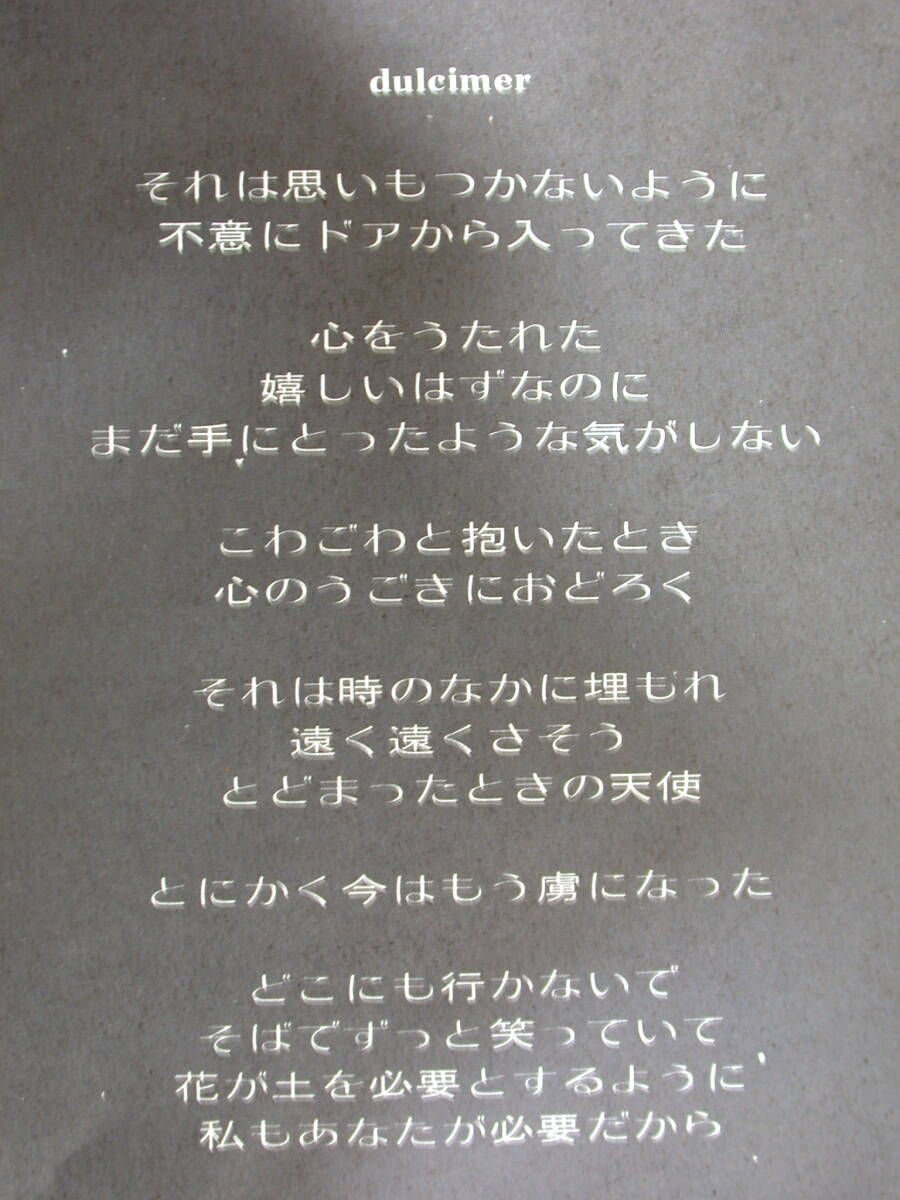 dulcimer
それは思いもつかないように
不意にドアから入ってきた
心をうたれた
嬉しいはずなのに
まだ手にとったような気がしない
こわごわと抱いたとき
心のうごきにおどろく
それは時のなかに埋もれ
遠く遠くさそう
とどまったときの天使
とにかく今はもう虜になった
どこにも行かないで
そばでずっと笑っていて
花が土を必要とするように
私もあなたが必要だから